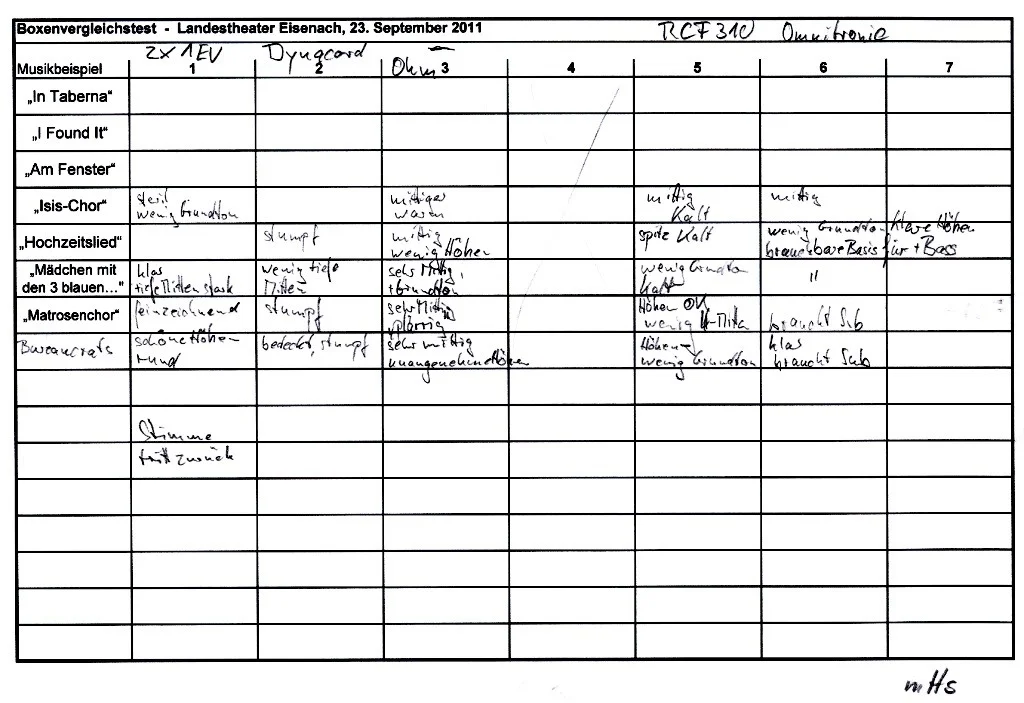 Boxenvergleichstest - Landestheater Eisenach, 23. September 2011 RCF 310 Omnitronic
2x1EV Dynacord Ohm
Musikbeispiel 1 2 3 4 5 6 7
„In Taberna“
„I Found It“
„Am Fenster“
„Isis-Chor“ steril mittiger mittig mittig
wenig Grundton warm Kalt
„Hochzeitslied“ stumpf mittig spitz Kalt wenig Grundton klare Höhen
wenig Höhen brauchbare Basis für + Bass
„Mädchen mit klar wenig tiefe sehr Mittig, wenig Grundton "
den 3 blauen...“ tiefe Mitten stark Mitten +Grundton kalt
„Matrosenchor“ feinzeichnend stumpf sehr Mittig Höhen OK
plärrig wenig braucht Sub
Bureaucrats schöne Höhen bedeckt, stumpf sehr mittig Höhen- klar
rund unangenehme Höhen wenig Grundton braucht Sub
Stimme
tritt zurück